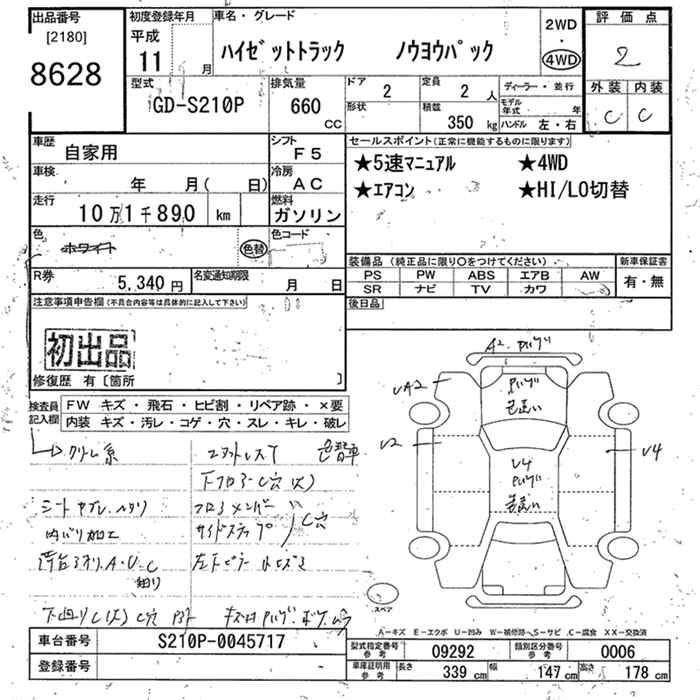 出品番号
[2180]
8628
初度登録年月
平成
11
月
車名・グレード
ハイゼットトラック ノウヨウパック
2WD
・
4WD
評価点
2
外装 内装
C C
型式
GD-S210P
排気量
660
CC
ドア
2
定員
2 人
形状
積載
350 kg
ディーラー・並行
モデル年式 年
ハンドル 左・右
車歴
自家用
シフト
F5
車検
年 月( 日)
冷房
AC
走行
10万1千890 km
燃料
ガソリン
色
ホワイト
色替
色コード
R券
5,340 円
名変通知期限
月 日
セールスポイント(正常に機能するものに限ります)
★5速マニュアル ★4WD
★エアコン ★HI/LO切替
装備品 (純正品に限り○をつけてください)
PS PW ABS エアB AW
SR ナビ TV カワ
新車保証書
有・無
後日品
注意事項申告欄(不具合内容等は具体的に記入して下さい)
初出品
修復歴 有〔箇所 〕
検査員記入欄
FW キズ・飛石・ヒビ割・リペア跡・×要
内装 キズ・汚レ・コゲ・穴・スレ・キレ・破レ
クリーム系
色替車
下フロアーC穴(大)
シートヤブレ、ヘタリ
フロアメンバー
サイドステップ
C穴
内バリ加工
荷台
A・U・C
下廻りC(大)C穴
A2
バンパ
UA2
U2
U4
色違い
U4
スペア
A-キズ E-エクボ U-凹み W-補修跡 S-サビ C-腐食 XX-交換済
車台番号
S210P-0045717
登録番号
型式指定番号
参考
09292
類別区分番号
参考
0006
車庫証明用
参考
長さ
339 cm
幅
147 cm
高さ
178 cm